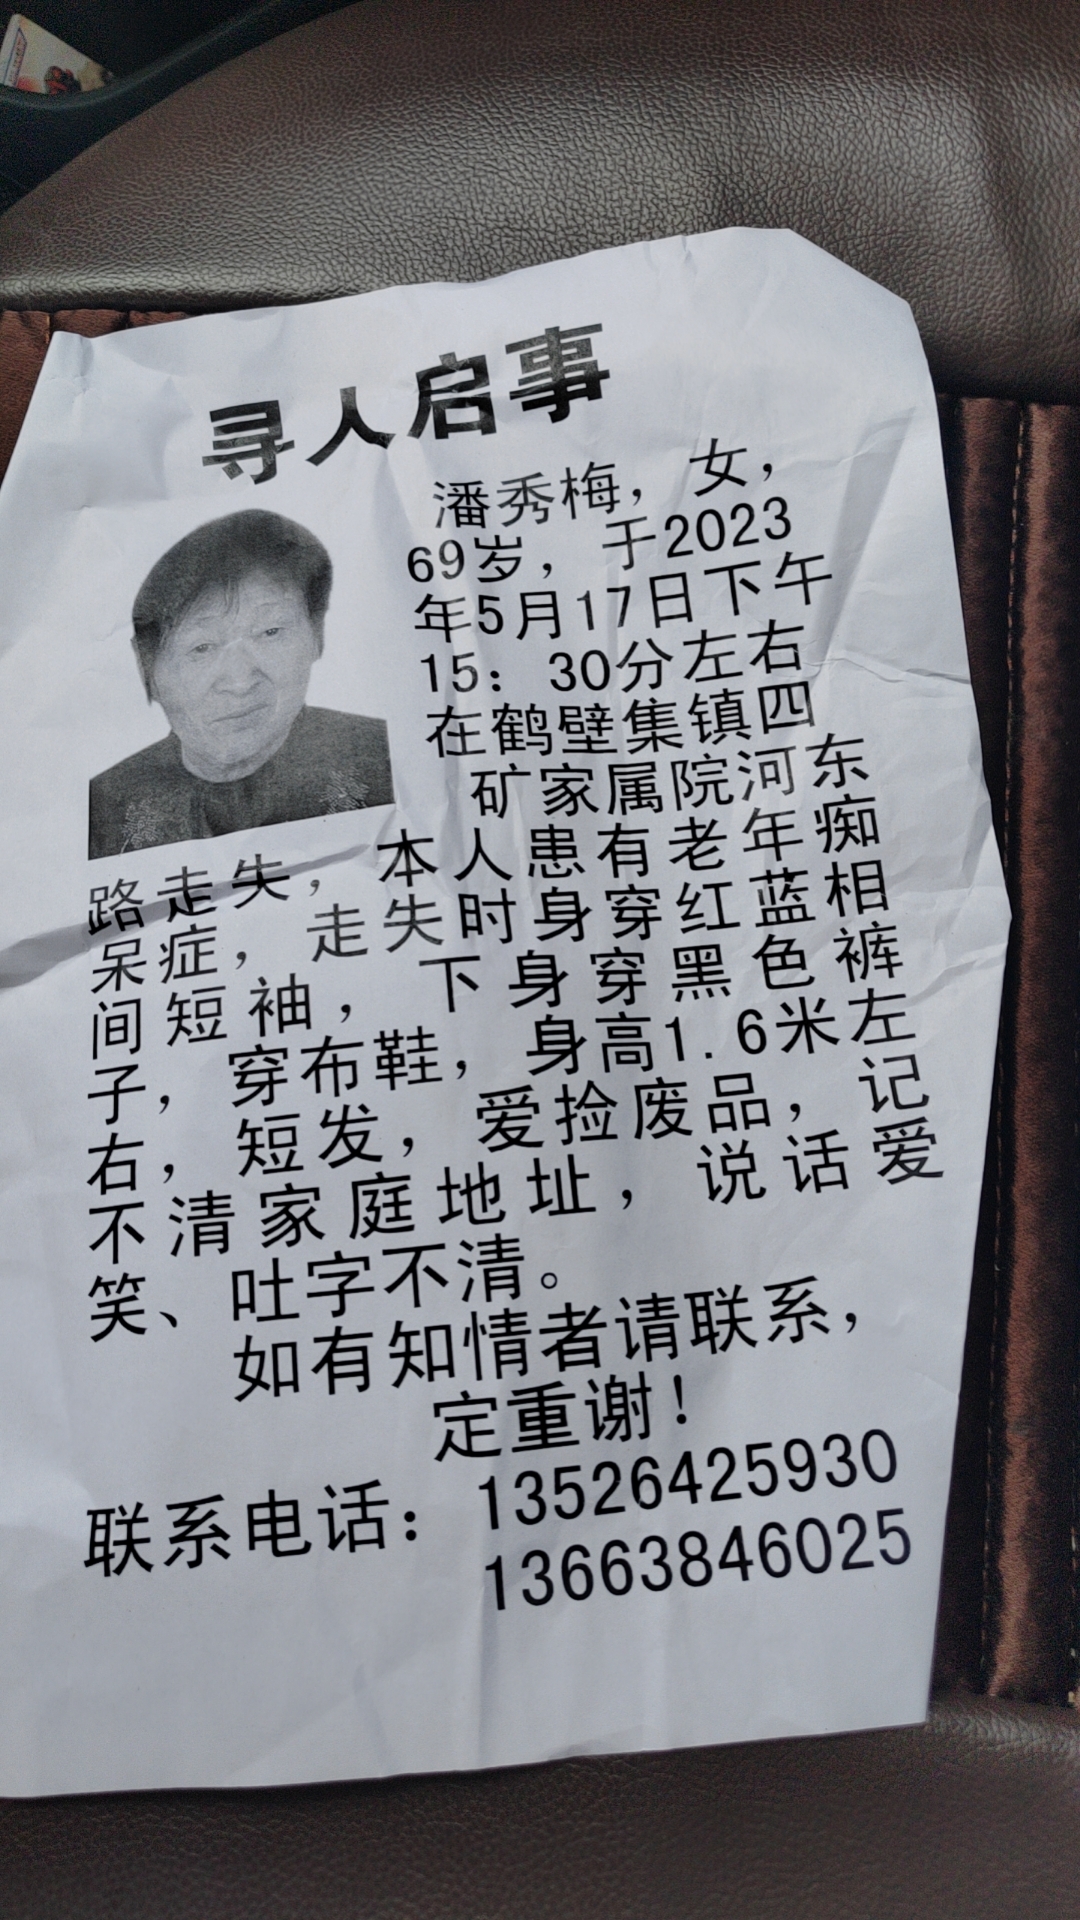 寻人启事
潘秀梅，女，
69岁，于2023
年5月17日下午
15：30分左右
在鹤壁集镇四
矿家属院河东
路走失，本人患有老年痴
呆症，走失时身穿红蓝相
间短袖，下身穿黑色裤
子，穿布鞋，身高1.6米左
右，短发，爱捡废品，记
不清家庭地址，说话爱
笑、吐字不清。
如有知情者请联系，
定重谢！
联系电话：13526425930
13663846025